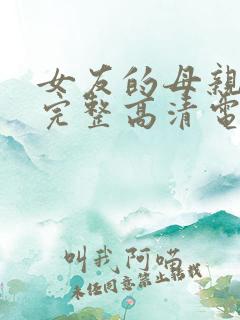 女友的母親
完整高清電
叫我阿喵
未经同意禁止转载